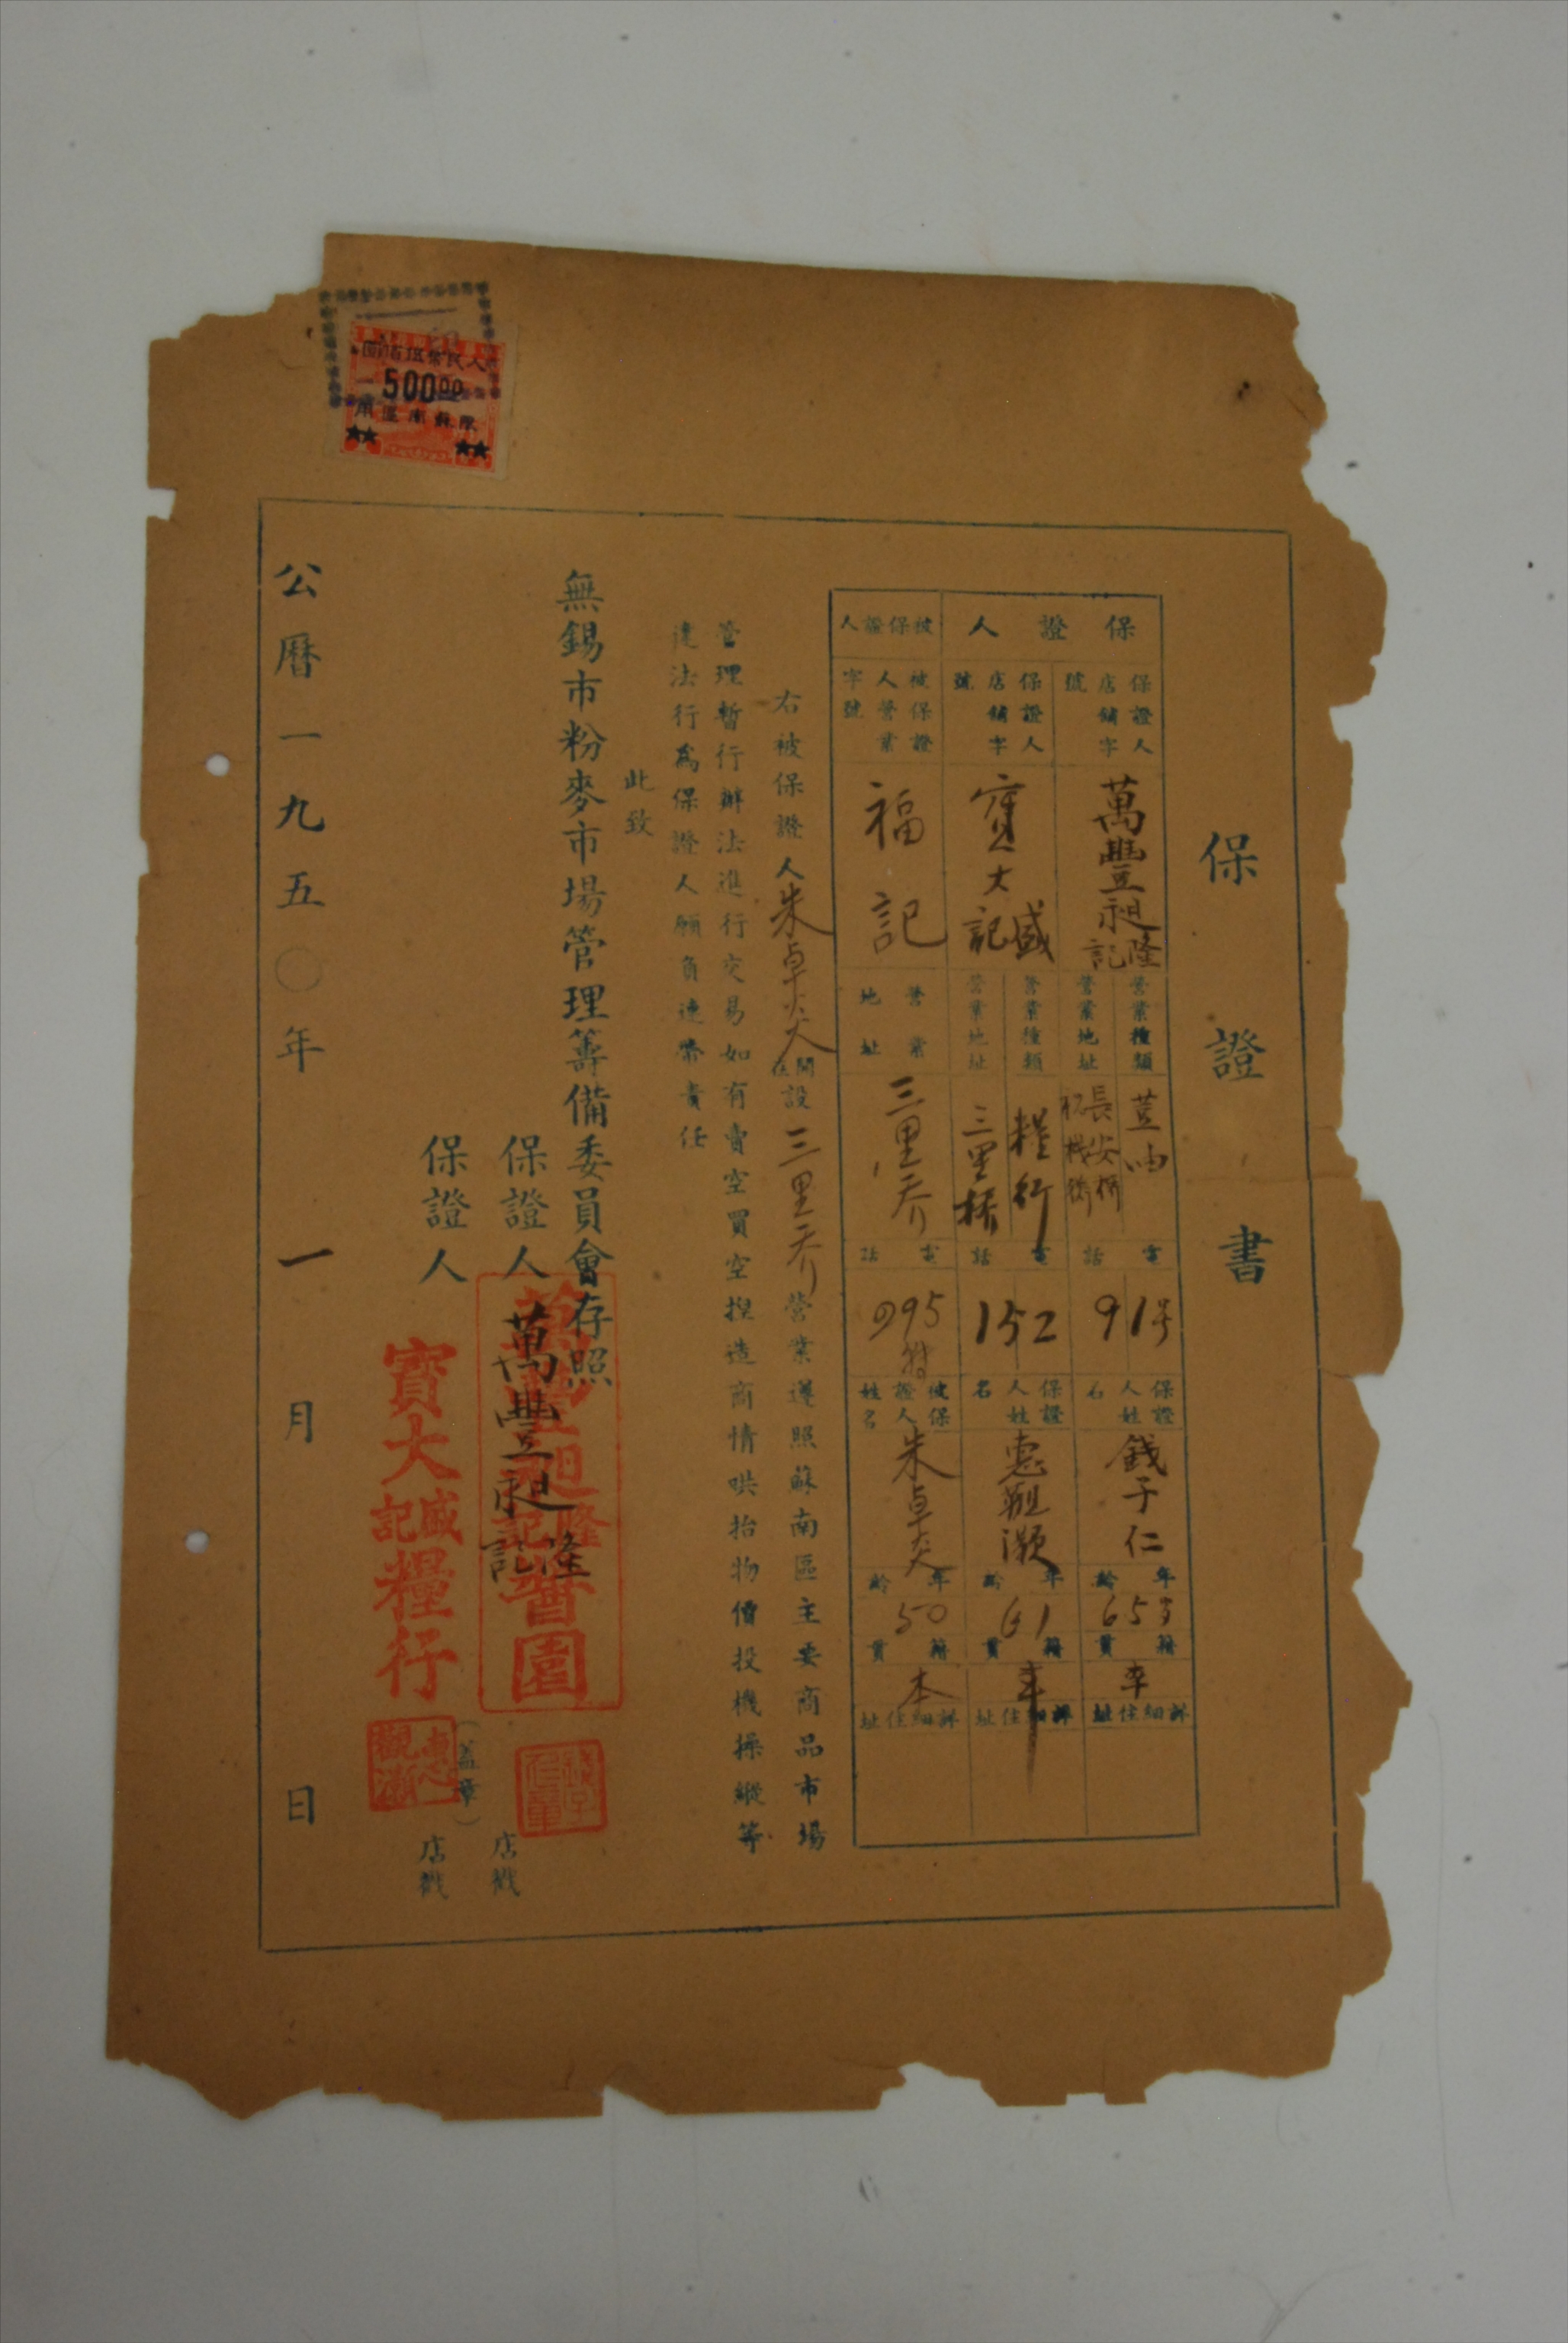 保證書
保證人
保證人店鋪字號
萬豐昶隆記
營業種類
營業地址
長安橋
電話
91号
保證人姓名
錢子仁
年齡
65岁
籍貫
詳細住址
保證人店鋪字號
寶大盛記
營業種類
糧行
營業地址
三里橋
電話
152
保證人姓名
惠觀灝
年齡
61
籍貫
詳細住址
被保證人
被保證人營業字號
福記
營業地址
三里乔
電話
995
被保證人姓名
朱卓炎
年齡
50
籍貫
本
詳細住址
右被保證人朱卓炎開設三里乔營業遵照蘇南區主要商品市場
管理暫行辦法進行交易如有賣空買空揑造商情哄抬物價投機操縱等
違法行為保證人願負連帶責任
此致
無錫市粉麥市場管理籌備委員會存照
保證人
萬豐昶隆記
萬豐昶隆記醬園
店戳
保證人
寶大盛記糧行
惠觀灝
(蓋章)
店戳
公曆一九五〇年一月日
人民幣伍佰圓
500.00
限蘇南區用